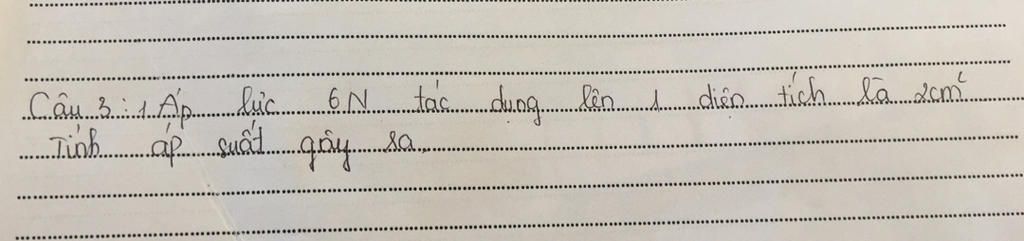 Câu 3: 1 Áp lực 6N tác dụng lên 1 diện tích là 2cm²
Tính áp suất gây ra.